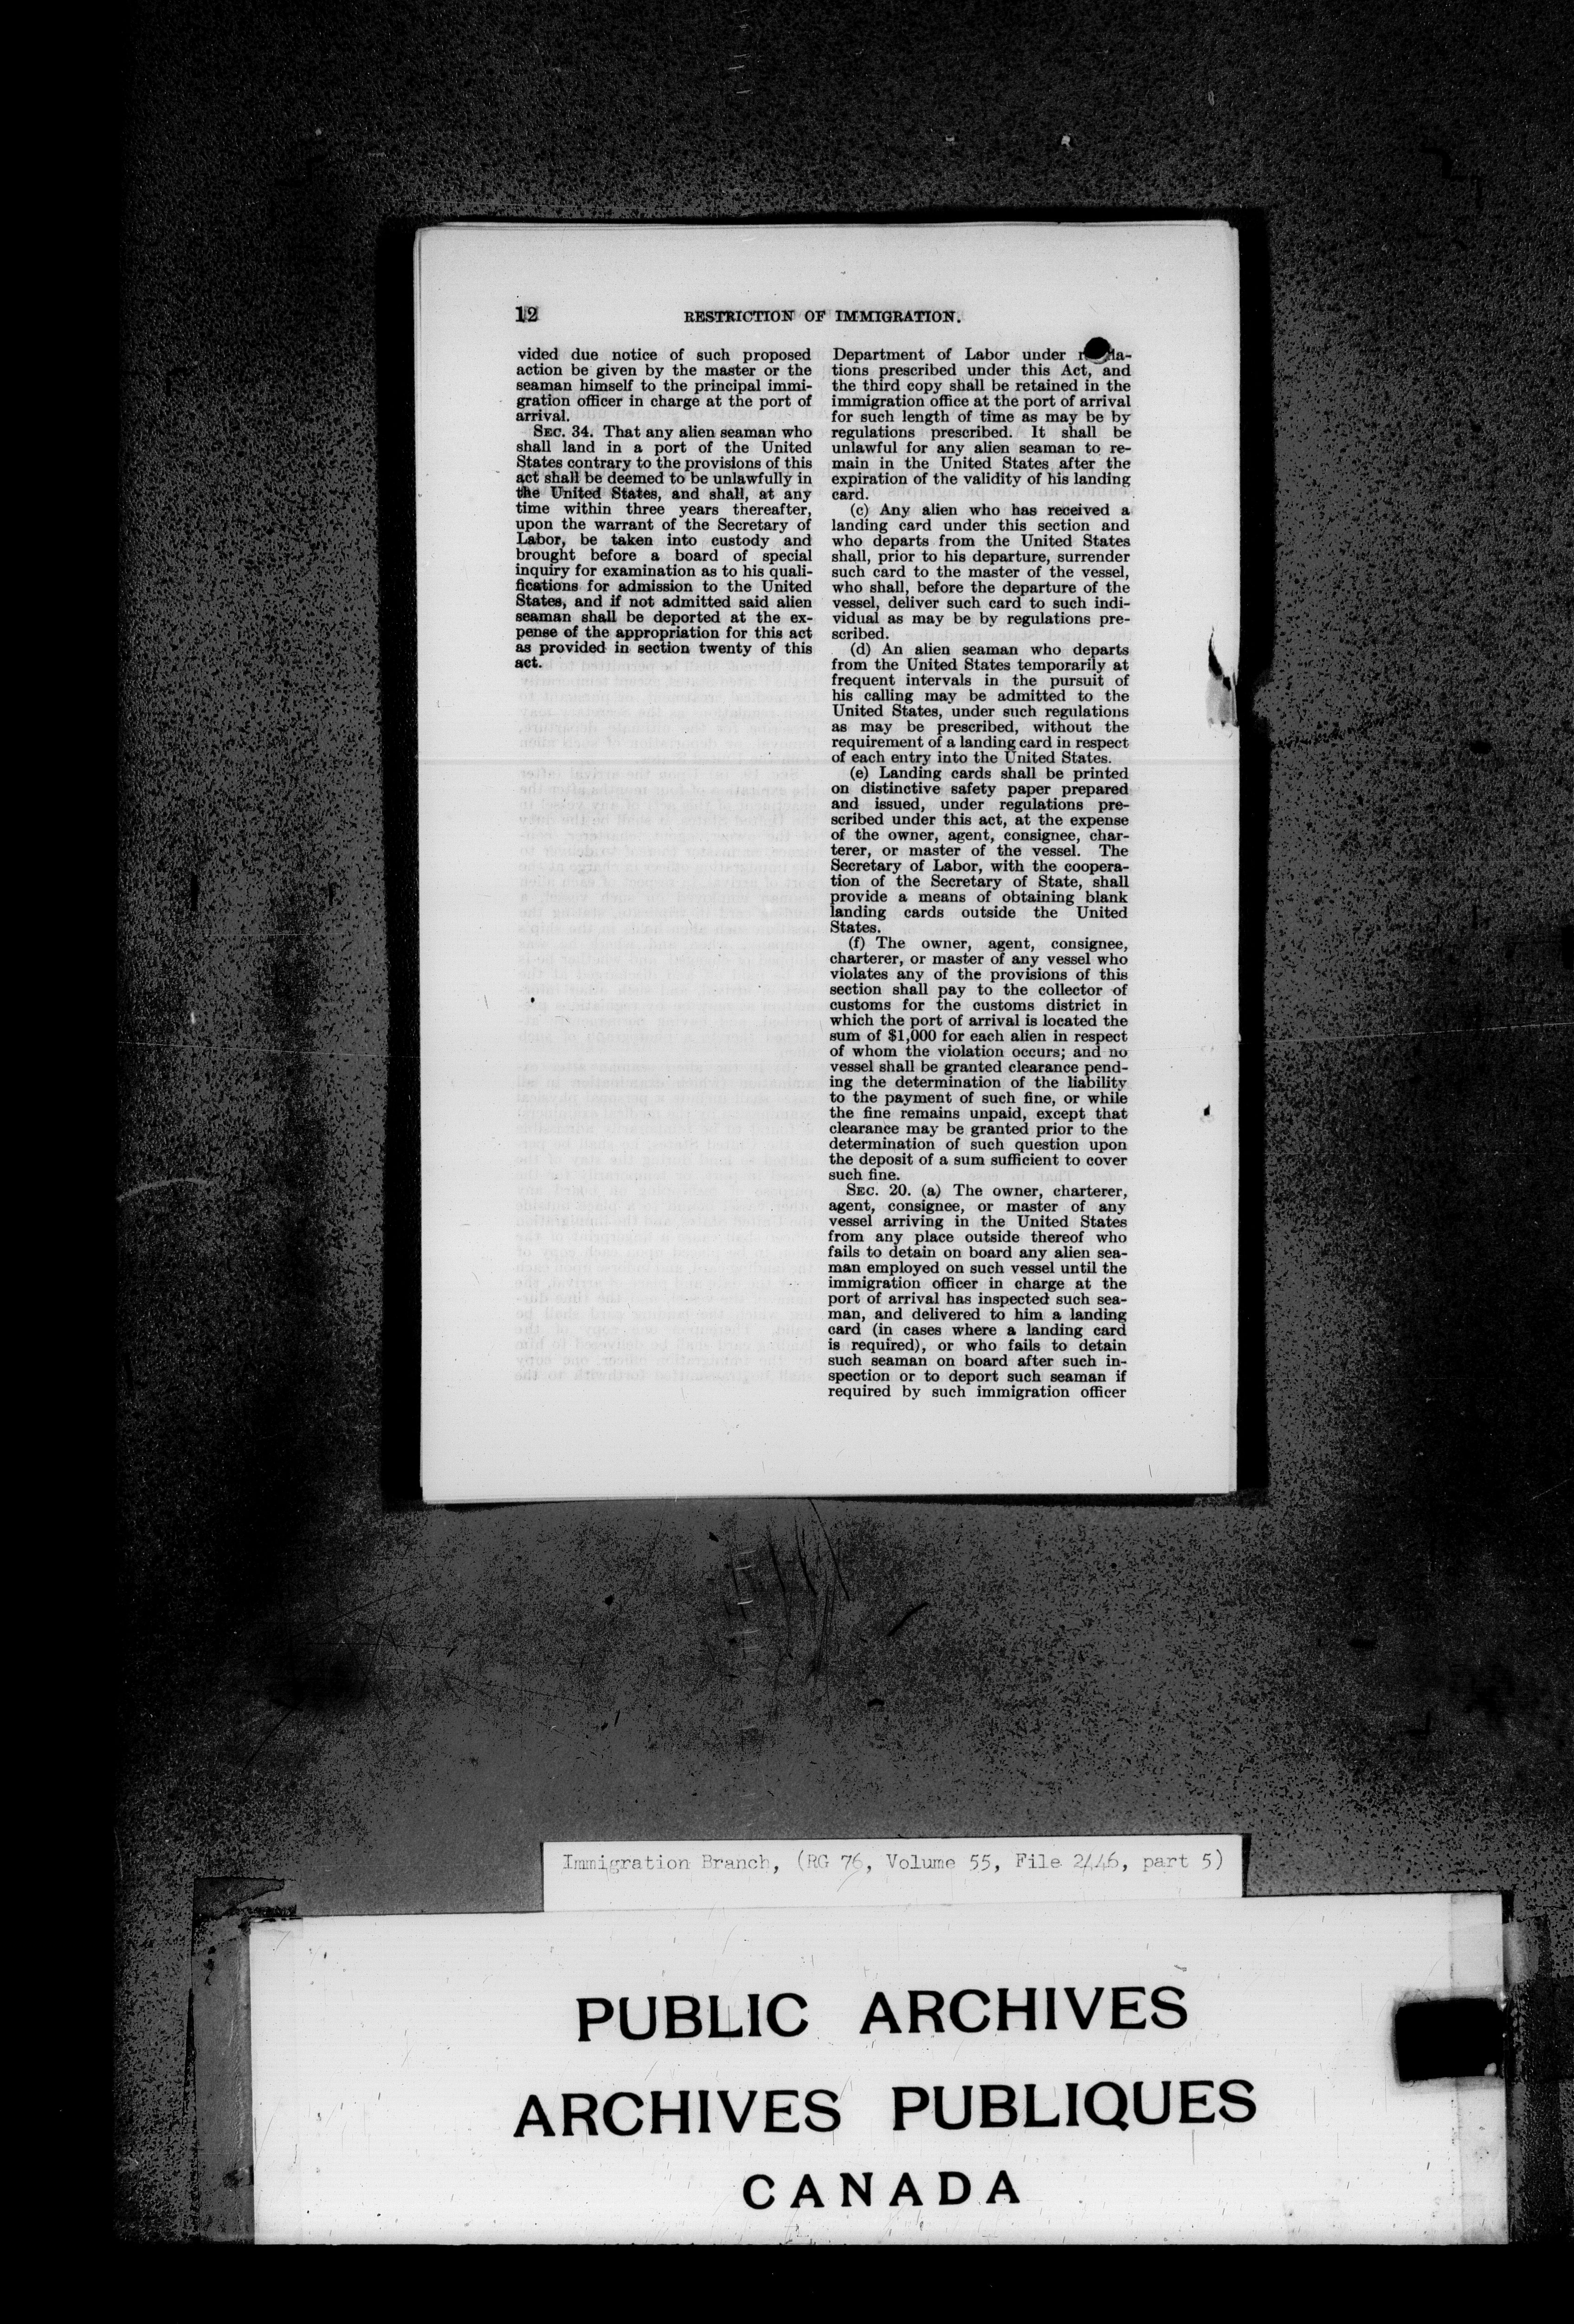 12
RESTRICTION OF IMMIGRATION.
vided due notice of such proposed
action be given by the master or the
seaman himself to the principal immi-
gration officer in charge at the port of
arrival.
SEC. 34. That any alien seaman who
shall land in a port of the United
States contrary to the provisions of this
act shall be deemed to be unlawfully in
the United States, and shall, at any
time within three years thereafter,
upon the warrant of the Secretary of
Labor, be taken into custody and
brought before a board of special
inquiry for examination as to his quali-
fications for admission to the United
States, and if not admitted said alien
seaman shall be deported at the ex-
pense of the appropriation for this act
as provided in section twenty of this
act.
Department of Labor under
tions prescribed under this Act, and
the third copy shall be retained in the
immigration office at the port of arrival
for such length of time as may be by
regulations prescribed. It shall be
unlawful for any alien seaman to re-
main in the United States after the
expiration of the validity of his landing
card.
(c) Any alien who has received a
landing card under this section and
who departs from the United States
shall, prior to his departure, surrender
such card to the master of the vessel,
who shall, before the departure of the
vessel, deliver such card to such indi-
vidual as may be by regulations pre-
scribed.
(d) An alien seaman who departs
from the United States temporarily at
frequent intervals in the pursuit of
his calling may be admitted to the
United States, under such regulations
as may be prescribed, without the
requirement of a landing card in respect
of each entry into the United States.
(e) Landing cards shall be printed
on distinctive safety paper prepared
and issued, under regulations pre-
scribed under this act, at the expense
of the owner, agent, consignee, char-
terer, or master of the vessel. The
Secretary of Labor, with the coopera-
tion of the Secretary of State, shall
provide a means of obtaining blank
landing cards outside the United
States.
(f) The owner, agent, consignee,
charterer, or master of any vessel who
violates any of the provisions of this
section shall pay to the collector of
customs for the customs district in
which the port of arrival is located the
sum of $1,000 for each alien in respect
of whom the violation occurs; and no
vessel shall be granted clearance pend-
ing the determination of the liability
to the payment of such fine, or while
the fine remains unpaid, except that
clearance may be granted prior to the
determination of such question upon
the deposit of a sum sufficient to cover
such fine.
SEC. 20. (a) The owner, charterer,
agent, consignee, or master of any
vessel arriving in the United States
from any place outside thereof who
fails to detain on board any alien sea-
man employed on such vessel until the
immigration officer in charge at the
port of arrival has inspected such sea-
man, and delivered to him a landing
card (in cases where a landing card
is required), or who fails to detain
such seaman on board after such in-
spection or to deport such seaman if
required by such immigration officer
Immigration Branch, (RG 76, Volume 55, File 2446, part 5)
PUBLIC ARCHIVES
ARCHIVES PUBLIQUES
CANADA